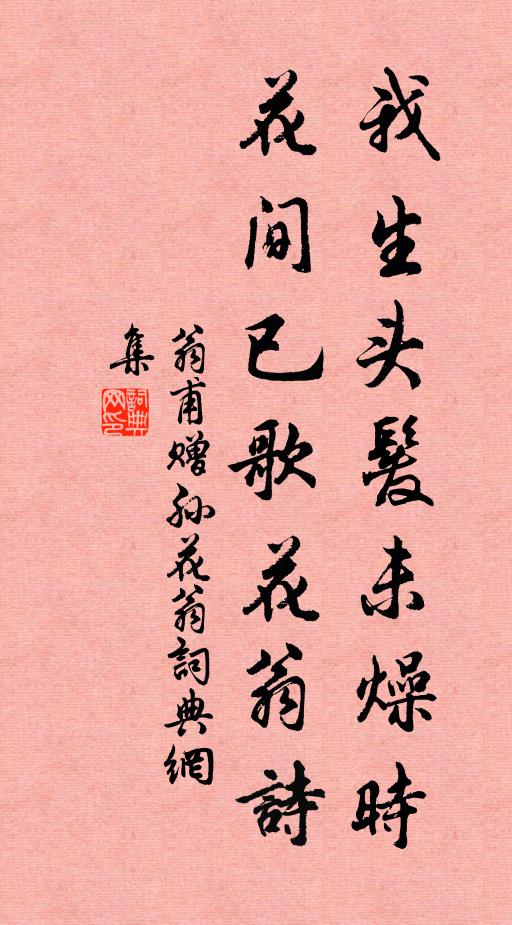 我生头髮未燥時
花间已歌花翁詩
翁甫赠孙花翁詞典網
集
詞典
网印